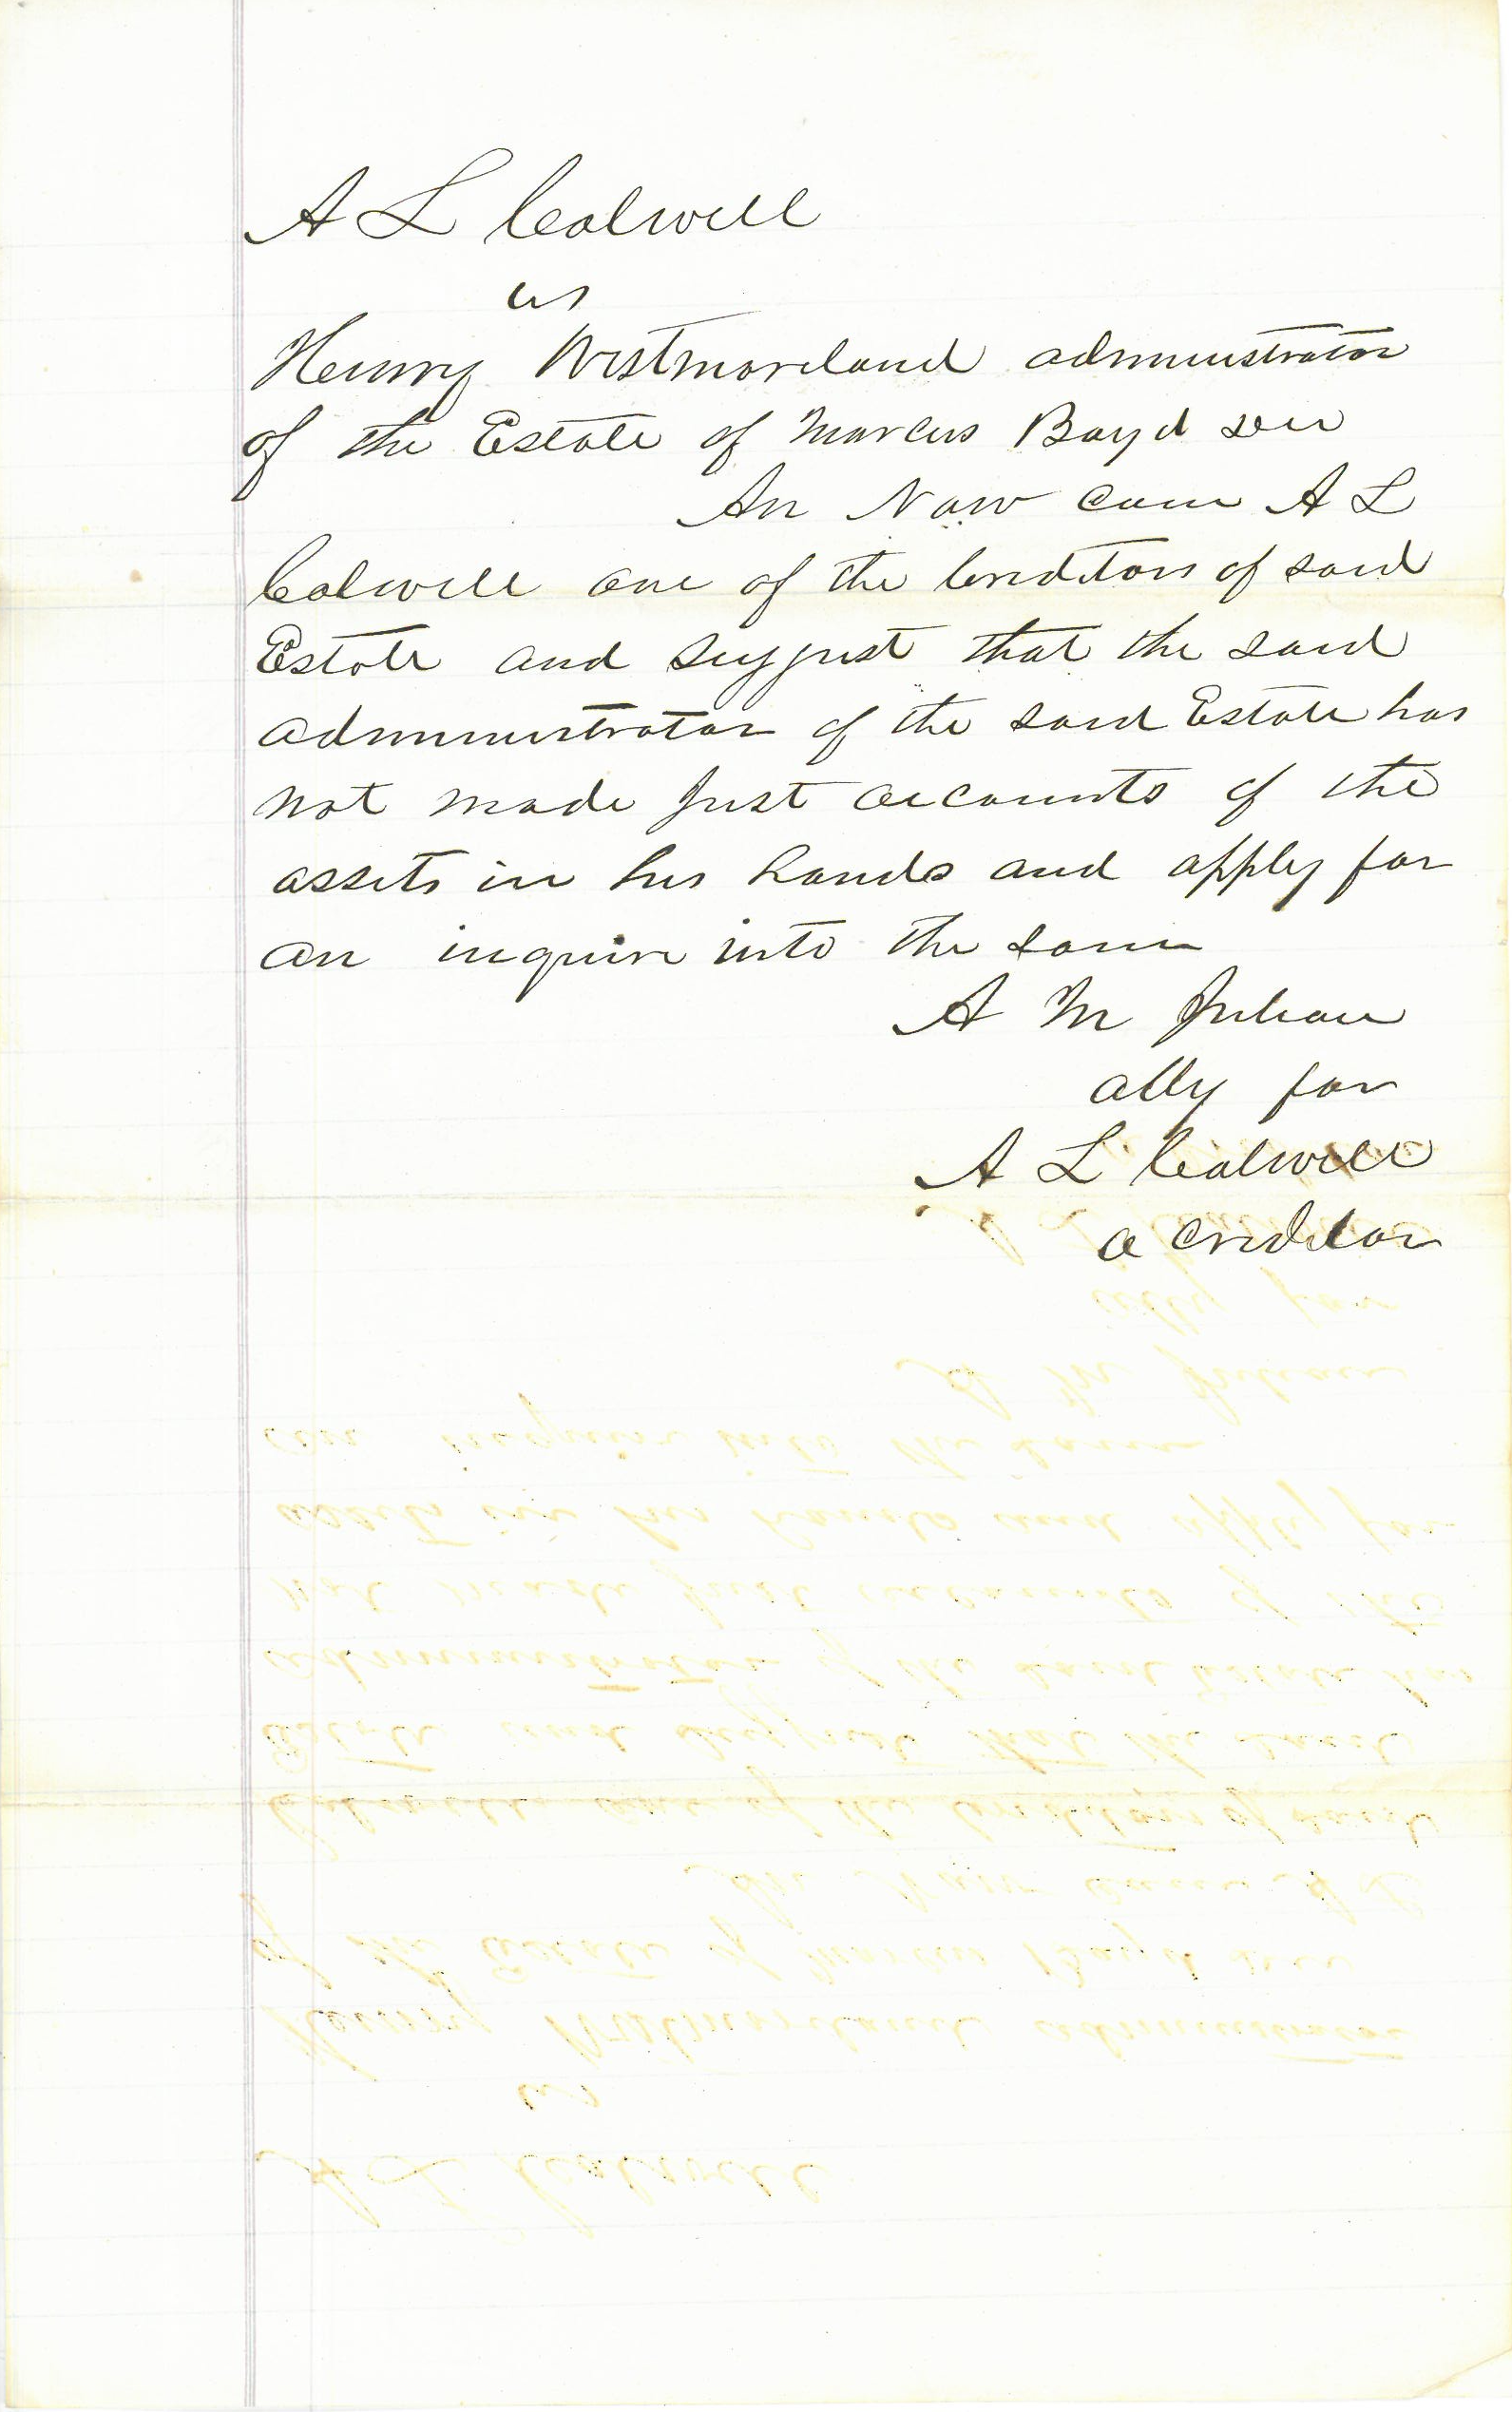 A L Colwell
vs
Henry Westmoreland administrator
of the Estate of Marcus Boyd
An Now Com A L
Colwell one of the Creditors of said
Estate and suggest that the said
administrator of the said Estate has
not made Just accounts of the
assets in his hands and apply for
an inquire into the same
A M Julian
atty for
A L Colwell
a creditor